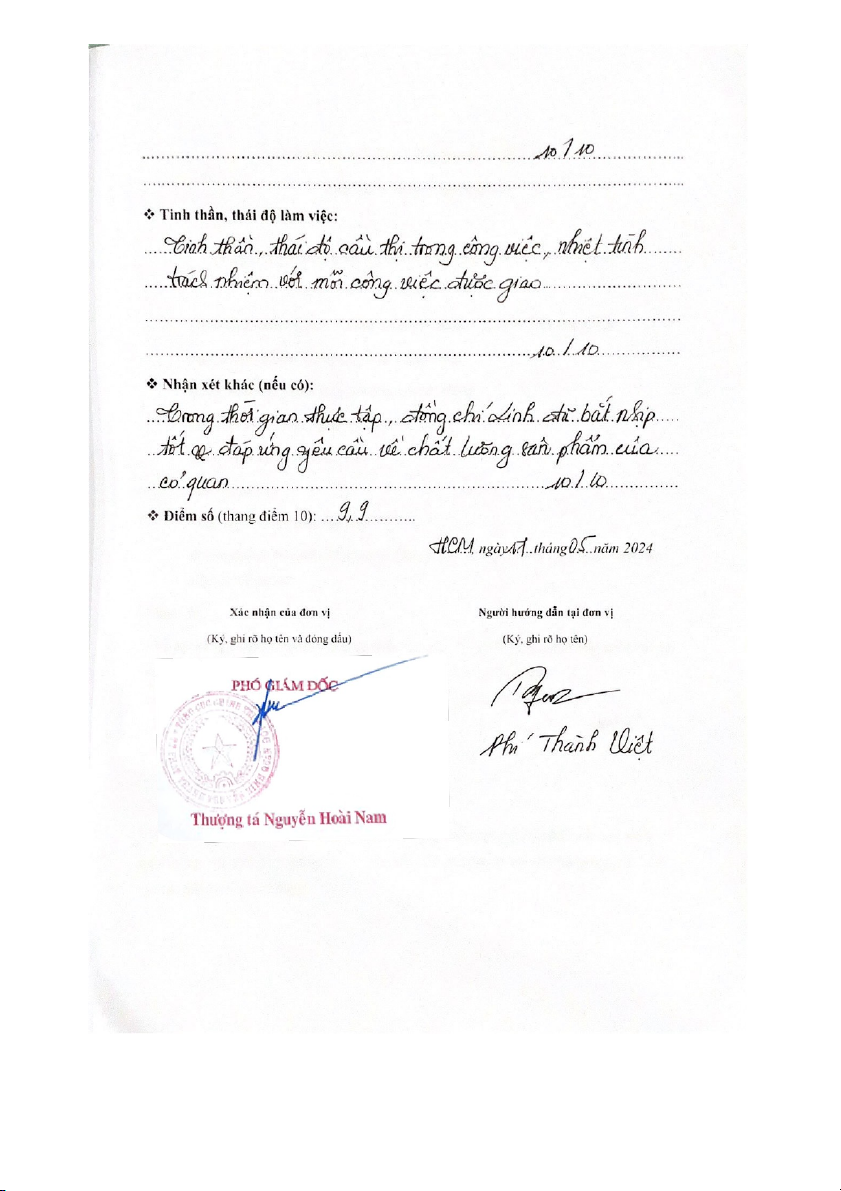 10/10
❖ Tinh thần, thái độ làm việc:
Tinh thần, thái độ cầu thị trong công việc, nhiệt tình
trách nhiệm với mỗi công việc được giao
10/10
❖ Nhận xét khác (nếu có):
Trong thời gian thực tập, đồng chí Linh đã bắt nhịp
tốt đáp ứng yêu cầu về chất lượng sản phẩm của
cơ quan 10/10
❖ Điểm số (thang điểm 10): 9,9
HCM, ngày 17 tháng 05 năm 2024
Xác nhận của đơn vị Người hướng dẫn tại đơn vị
(Ký, ghi rõ họ tên và đóng dấu) (Ký, ghi rõ họ tên)
PHÓ GIÁM ĐỐC
Phí Thành Việt
Thượng tá Nguyễn Hoài Nam